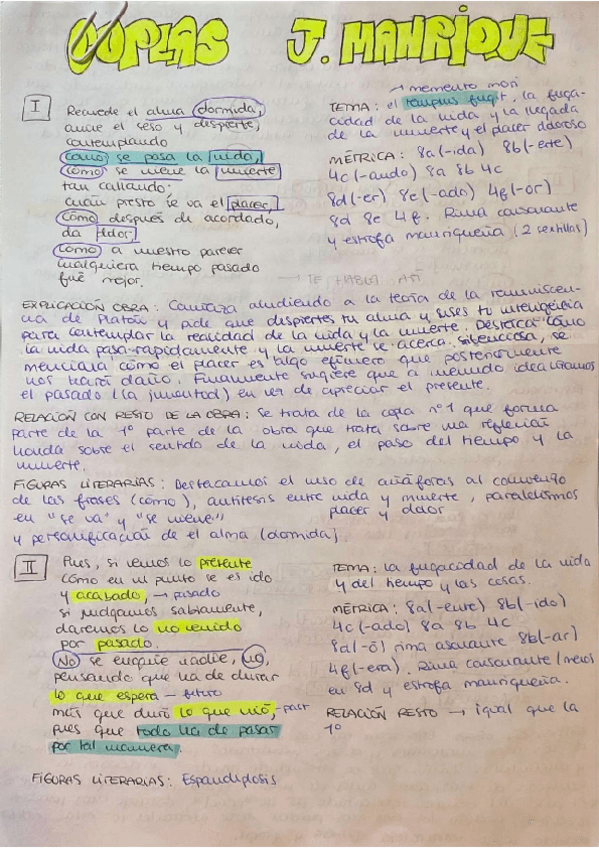 COPLAS J. MANRIQUE
I
Recuerde el alma dormida,
avive el seso y despierte,
contemplando
cómo se pasa la vida,
cómo se viene la muerte
tan callando;
cuán presto se va el placer,
cómo después de acordado,
da dolor
cómo a nuestro parecer
cualquiera tiempo pasado
fue mejor.
→ memento mori
TEMA: el tempus fugit, la fuga-
cidad de la vida y la llegada
de la muerte y el placer doloroso
MÉTRICA: 8a(-ida) 8b(-erte)
4c(-ando) 8a 8b 4c
8d(-er) 8e(-ado) 4f(-or)
8d 8e 4f. Rima consonante
y estrofa manriqueña (2 sextillas)
EXPLICACIÓN OBRA: Comienza aludiendo a la teoría de la reminiscen-
cia de Platón y pide que despiertes tu alma y uses tu inteligencia
para contemplar la realidad de la vida y la muerte. Destaca cómo
la vida pasa rápidamente y la muerte se acerca silenciosa, se
menciona cómo el placer es algo efímero que posteriormente
nos hará daño. Finalmente sugiere que a menudo idealizamos
el pasado (la juventud) en vez de apreciar el presente.
RELACIÓN CON RESTO DE LA OBRA: Se trata de la copla nº1 que forma
parte de la 1º parte de la obra que trata sobre una reflexión
honda sobre el sentido de la vida, el paso del tiempo y la
muerte.
FIGURAS LITERARIAS: Destacamos el uso de anáforas al comienzo
de las frases (cómo), antítesis entre vida y muerte, paralelismos
en "se va" y "se viene" placer y dolor
y personificación de el alma (dormida).
II
Pues, si vemos lo presente
cómo en un punto se es ido
y acabado, → pasado
si juzgamos sabiamente,
daremos lo no venido
por pasado.
No se engañe nadie, no,
pensando que ha de durar
lo que espera — futuro
más que duró lo que vió, -past
pues que todo ha de pasar
por tal manera.
TEMA: la fugacidad de la vida
y del tiempo y las cosas.
MÉTRICA: 8a(-ente) 8b(-ido)
4c(-ado) 8a 8b 4c
8d(-ó) rima asonante 8b(-ar)
4f(-era). Rima consonante (menos
en 8d y estrofa manriqueña.
RELACIÓN RESTO → igual que la
1º
FIGURAS LITERARIAS: Espandiplosis